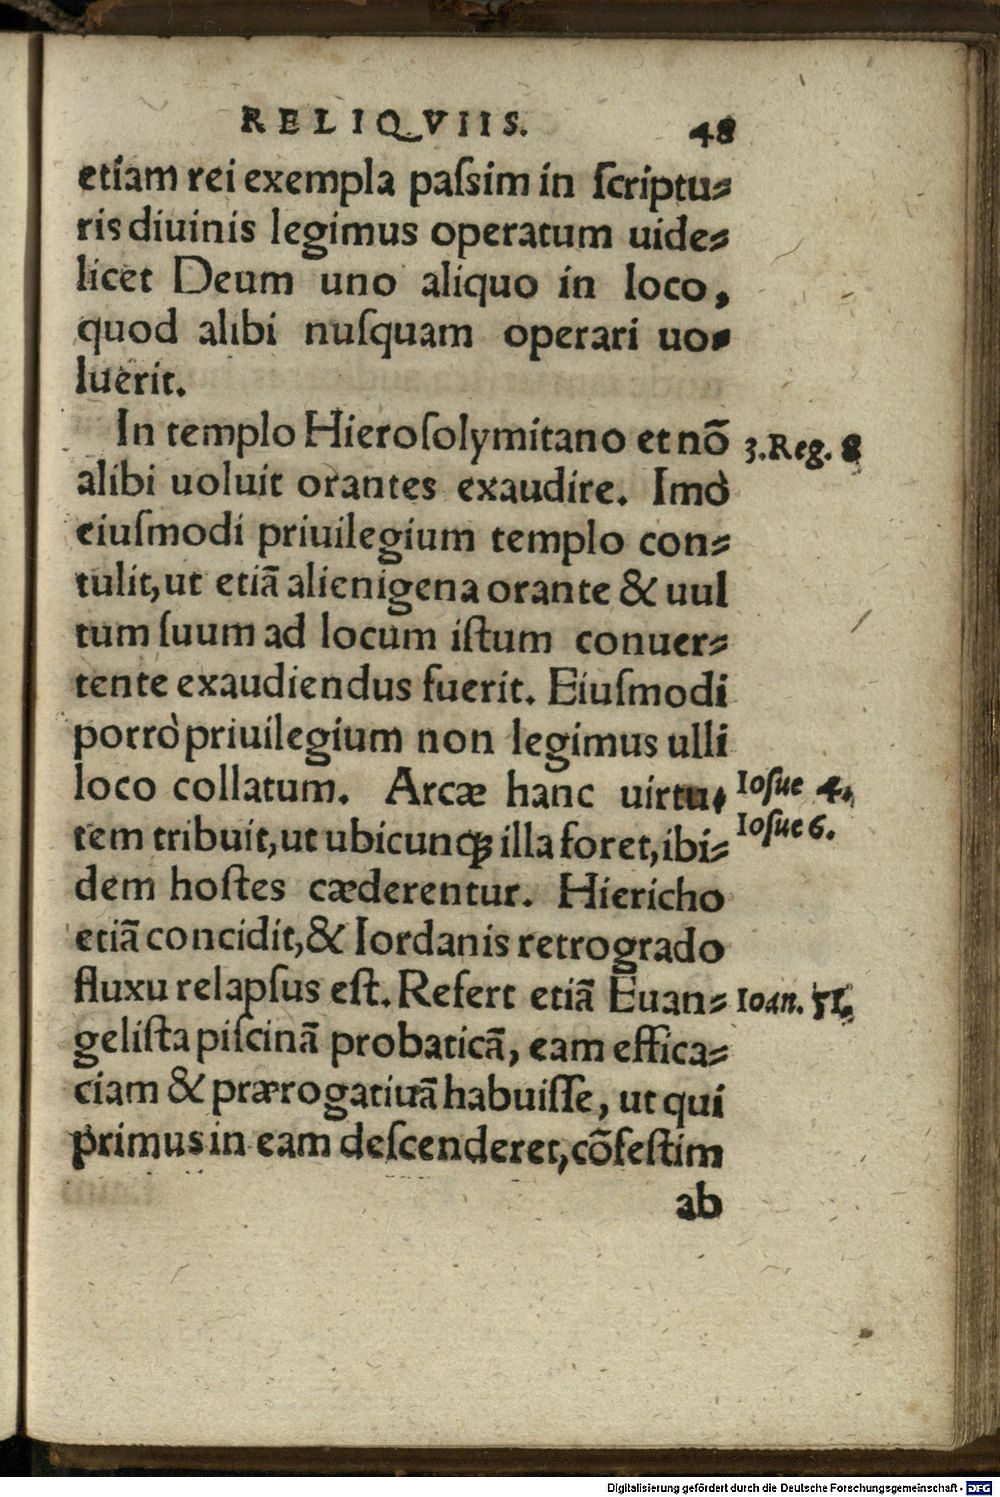 RELIQVIIS. 48
etiam rei exempla paſsim in ſcriptu-
ris diuinis legimus operatum uide-
licet Deum uno aliquo in loco,
quod alibi nuſquam operari uo-
luerit.
In templo Hieroſolymitano et nō 3.Reg. 8
alibi uoluit orantes exaudire. Imò
eiuſmodi priuilegium templo con-
tulit, ut etiā alienigena orante & uul
tum ſuum ad locum iſtum conuer-
tente exaudiendus fuerit. Eiuſmodi
porrò priuilegium non legimus ulli
loco collatum. Arcæ hanc uirtu- Ioſue 4.
tem tribuit, ut ubicunqꝫ illa foret, ibi- Ioſue 6.
dem hoſtes cæderentur. Hiericho
etiā concidit, & Iordanis retrogrado
fluxu relapſus eſt. Refert etiā Euan- Ioan.
geliſta piſcinā probaticā, eam effica-
ciam & prærogatiuā habuiſſe, ut qui
primus in eam deſcenderet, cōfeſtim
ab
Digitalisierung gefördert durch die Deutsche Forschungsgemeinschaft - DFG